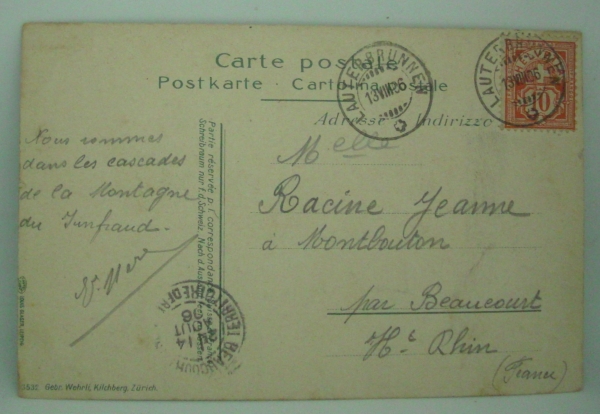 Carte postale
Postkarte · Cartolina postale
Adresse Indirizzo
LAUTERBRUNNEN
13.VIII.06
LAUTERBRUNNEN
13.VIII.06
10
Nous sommes
dans les cascades
de la Montagne
du
Partie réservée p. l. correspondance
Schreibraum nur f. d. Schweiz
Melle
Racine Jeanne
à Montbouton
par Beaucourt
Ht Rhin
(France)
BEAUCOURT
14
AOUT
06
5531 Gebr. Wehrli, Kilchberg, Zürich.